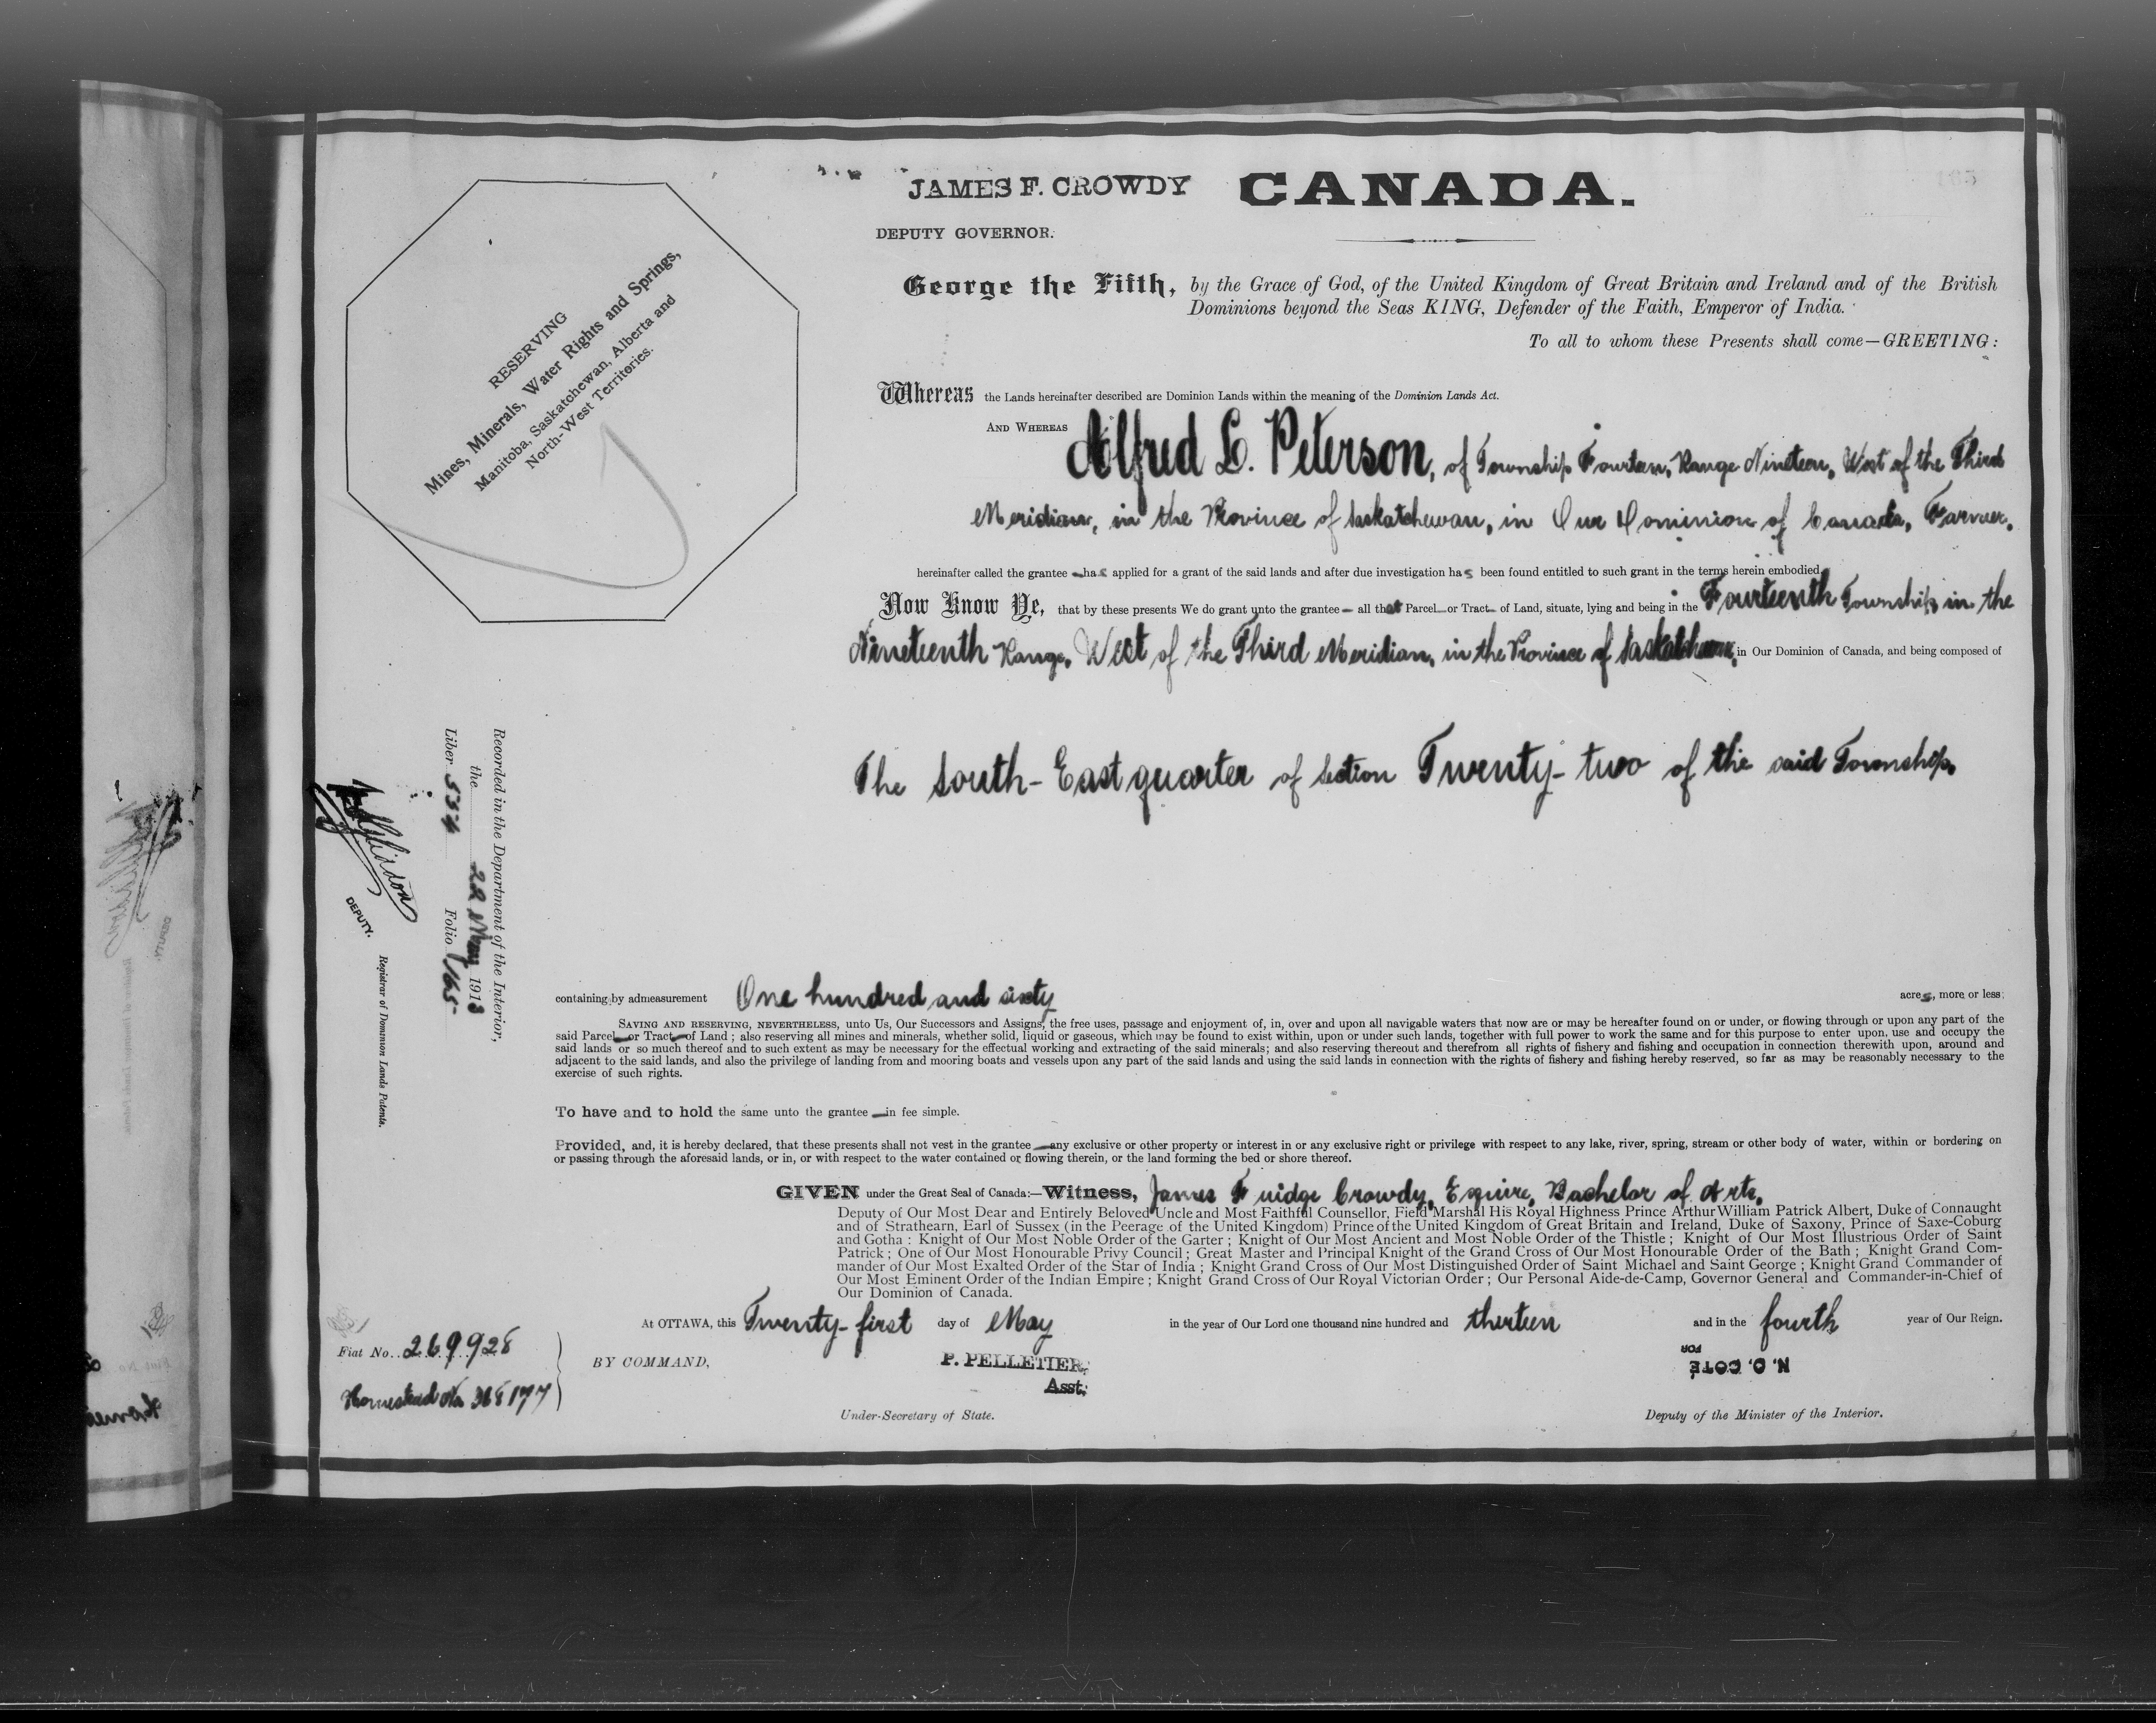 JAMES F. CROWDY
CANADA.
165
DEPUTY GOVERNOR.
RESERVING
Mines, Minerals, Water Rights and Springs,
Manitoba, Saskatchewan, Alberta and
North-West Territories.
George the Fifth, by the Grace of God, of the United Kingdom of Great Britain and Ireland and of the British
Dominions beyond the Seas KING, Defender of the Faith, Emperor of India.
To all to whom these Presents shall come—GREETING:
Whereas the Lands hereinafter described are Dominion Lands within the meaning of the Dominion Lands Act.
AND WHEREAS Alfred L. Peterson, of Township Fourteen, Range Nineteen, West of the Third
Meridian, in the Province of Saskatchewan, in Our Dominion of Canada, Farmer,
hereinafter called the grantee — has applied for a grant of the said lands and after due investigation has been found entitled to such grant in the terms herein embodied.
Now Know Ye, that by these presents We do grant unto the grantee — all that Parcel — or Tract — of Land, situate, lying and being in the Fourteenth Township in the
Nineteenth Range, West of the Third Meridian, in the Province of Saskatchewan, in Our Dominion of Canada, and being composed of
The South-East quarter of Section Twenty-two of the said Township.
Recorded in the Department of the Interior,
the 22 May 1913
Liber 534 Folio 165
DEPUTY.
Registrar of Dominion Lands Patents.
containing by admeasurement One hundred and sixty acres, more or less;
SAVING AND RESERVING, NEVERTHELESS, unto Us, Our Successors and Assigns, the free uses, passage and enjoyment of, in, over and upon all navigable waters that now are or may be hereafter found on or under, or flowing through or upon any part of the
said Parcel — or Tract — of Land; also reserving all mines and minerals, whether solid, liquid or gaseous, which may be found to exist within, upon or under such lands, together with full power to work the same and for this purpose to enter upon, use and occupy the
said lands or so much thereof and to such extent as may be necessary for the effectual working and extracting of the said minerals; and also reserving thereout and therefrom all rights of fishery and fishing and occupation in connection therewith upon, around and
adjacent to the said lands, and also the privilege of landing from and mooring boats and vessels upon any part of the said lands and using the said lands in connection with the rights of fishery and fishing hereby reserved, so far as may be reasonably necessary to the
exercise of such rights.
To have and to hold the same unto the grantee — in fee simple.
Provided, and, it is hereby declared, that these presents shall not vest in the grantee — any exclusive or other property or interest in or any exclusive right or privilege with respect to any lake, river, spring, stream or other body of water, within or bordering on
or passing through the aforesaid lands, or in, or with respect to the water contained or flowing therein, or the land forming the bed or shore thereof.
GIVEN under the Great Seal of Canada:—Witness, James Fuidge Crowdy, Esquire, Bachelor of Arts,
Deputy of Our Most Dear and Entirely Beloved Uncle and Most Faithful Counsellor, Field Marshal His Royal Highness Prince Arthur William Patrick Albert, Duke of Connaught
and of Strathearn, Earl of Sussex (in the Peerage of the United Kingdom) Prince of the United Kingdom of Great Britain and Ireland, Duke of Saxony, Prince of Saxe-Coburg
and Gotha: Knight of Our Most Noble Order of the Garter; Knight of Our Most Ancient and Most Noble Order of the Thistle; Knight of Our Most Illustrious Order of Saint
Patrick; One of Our Most Honourable Privy Council; Great Master and Principal Knight of the Grand Cross of Our Most Honourable Order of the Bath; Knight Grand Com-
mander of Our Most Exalted Order of the Star of India; Knight Grand Cross of Our Most Distinguished Order of Saint Michael and Saint George; Knight Grand Commander of
Our Most Eminent Order of the Indian Empire; Knight Grand Cross of Our Royal Victorian Order; Our Personal Aide-de-Camp, Governor General and Commander-in-Chief of
Our Dominion of Canada.
At OTTAWA, this Twenty-first day of May in the year of Our Lord one thousand nine hundred and thirteen and in the fourth year of Our Reign.
Fiat No. 269928
Homestead No. 368177
BY COMMAND,
P. PELLETIER,
Asst.
Under-Secretary of State.
FOR
N. O. COTÉ
Deputy of the Minister of the Interior.